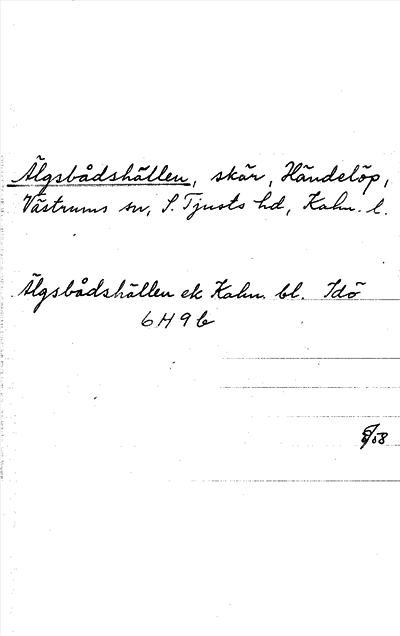 Älgsbådshällen, skär, Händelöp,
Västrums sn, S. Tjusts hd, Kalm. l.
Älgsbådshällen ek Kalm. bl. Idö
6H9b